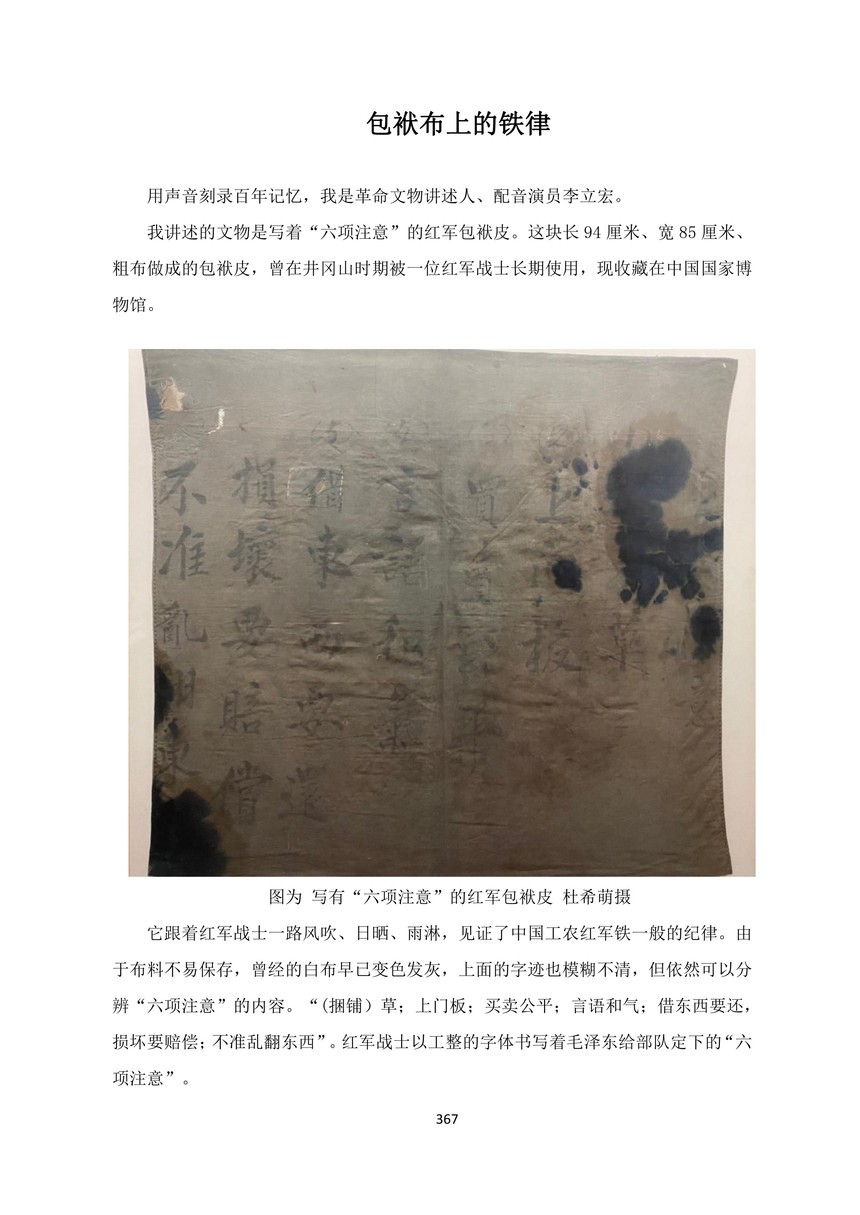 包袱布上的铁律
用声音刻录百年记忆，我是革命文物讲述人、配音演员李立宏。
我讲述的文物是写着“六项注意”的红军包袱皮。这块长 94 厘米、宽 85 厘米、
粗布做成的包袱皮，曾在井冈山时期被一位红军战士长期使用，现收藏在中国国家博
物馆。
上 板
買賣
言語和氣
借東西要還
損壞要賠償
不准亂
图为 写有“六项注意”的红军包袱皮 杜希萌摄
它跟着红军战士一路风吹、日晒、雨淋，见证了中国工农红军铁一般的纪律。由
于布料不易保存，曾经的白布早已变色发灰，上面的字迹也模糊不清，但依然可以分
辨“六项注意”的内容。“(捆铺）草；上门板；买卖公平；言语和气；借东西要还，
损坏要赔偿；不准乱翻东西”。红军战士以工整的字体书写着毛泽东给部队定下的“六
项注意”。
367